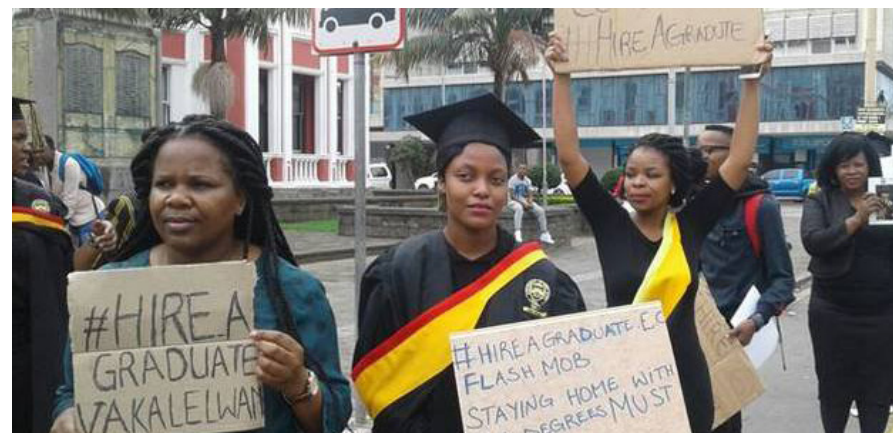 #HIRE AGRADUTE
#HIRE A
GRADUATE
VAKALELWAN
#HIREAGRADUATE EC
FLASH MOB
STAYING HOME WITH
DEGREES MUST
HIRE